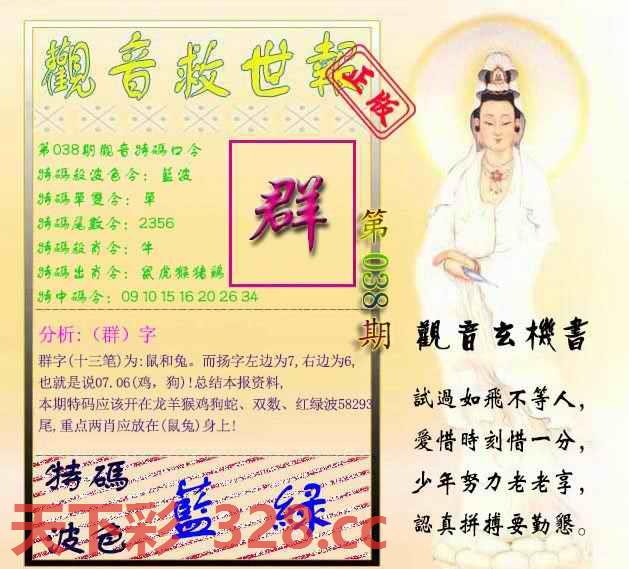 觀音救世報
正版
第038期觀音特碼口令
特碼殺波色令：藍波
特碼單雙令：單
特碼尾數令：2356
特碼殺肖令：牛
特碼出肖令：鼠虎猴猪鷄
特中碼令：09 10 15 16 20 26 34
群
第038期
分析:（群）字
群字(十三笔)为:鼠和兔。而扬字左边为7,右边为6,
也就是说07.06(鸡，狗)!总结本报资料,
本期特码应该开在龙羊猴鸡狗蛇、双数、红绿波58293
尾,重点两肖应放在(鼠兔)身上!
特碼
波色
藍 緑
觀音玄機書
試過如飛不等人，
愛惜時刻惜一分，
少年努力老老享，
認真拼搏要勤懇。
天下彩 328.cc